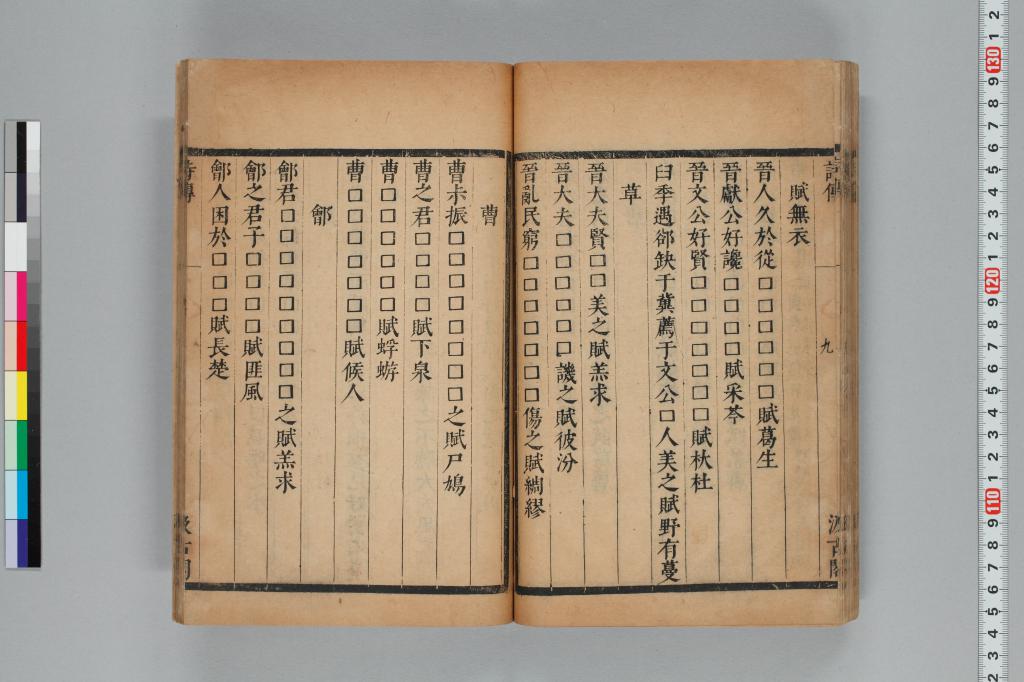 詩傳
九
汲古閣
賦無衣
晉人久於從□□□□□□賦葛生
晉獻公好讒□□□□賦采苓
晉文公好賢□□□□□□□賦杕杜
臼季遇郤缺于冀薦于文公□人美之賦野有蔓
草
晉大夫賢□□美之賦羔求
晉大夫□□□□□□譏之賦彼汾
晉亂民窮□□□□□□□傷之賦綢繆
曹
曹尗振□□□□□□□□之賦尸鳩
曹之君□□□□賦下泉
曹□□□□□□賦蜉蝣
曹□□□□□□□賦候人
鄶
鄶君□□□□□□□□□之賦羔求
鄶之君子□□□□賦匪風
鄶人困於□□□賦長楚
詩傳
汲古閣